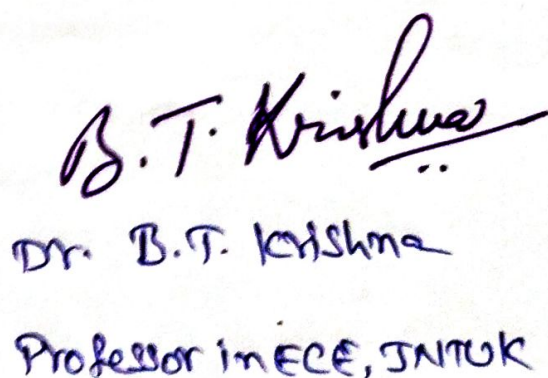 B. T. Krishna
Dr. B.T. Krishna
Professor in ECE, JNTUK